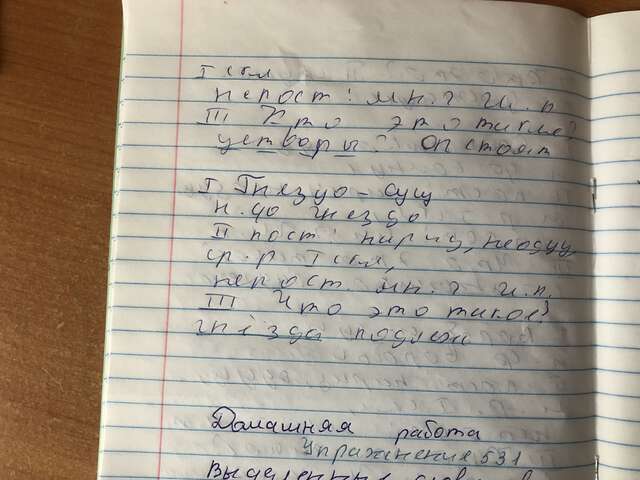 I скл
непост: мн. ч и. п
III Кто это такие?
узоры: стоят
I Гнездо - сущ
н. ф гнездо
II пост: нариц, неодуш,
ср. р I скл,
непост мн. ч и. п.
III Что это такое?
гнёзда подлеж
Домашняя работа
Упражнение 531
Выделенные